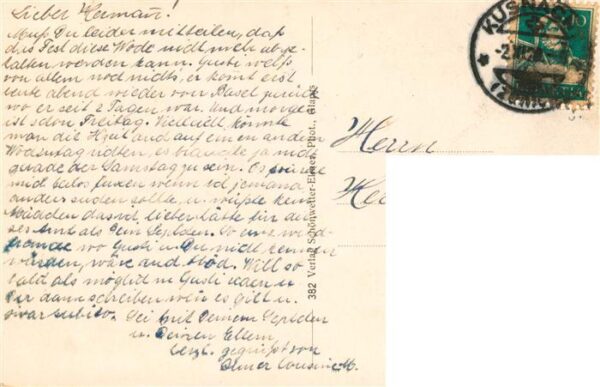 Lieber Hermann!
Muß Du leider mitteilen, daß
das Fest diese Woche nicht mehr abge-
halten werden kann. Gusti weiß
von allem noch nichts, er komt erst
heute abend wieder von Basel zurück
wo er seit 2 Tagen war. Und morgen
ist schon Freitag. Vielleicht könnte
man die Hzeit auch auf einen andern
Wochentag richten, es brauchte ja nicht
gerade der Samstag zu sein. Es würde
mich wenn ich jemand
anders suchen sollte, u. wüßte kein
Mädchen das ich lieber hätte für die-
ses Amt als Dein So eine wild-
fremde wo Gusti u. Du nicht kennen
würden, wäre auch blöd. Will so
bald als möglich m. Gusti reden u.
Dir dann schreiben wen es gilt u.
zwar subito. Sei mit Deinem
u. Deinen Eltern,
herzl. gegrüßt von
Cousine M.
382 Verlag Schönwetter-Elmer, Phot., Glarus
KÜSNACHT
(ZÜRICH)
10
Herrn